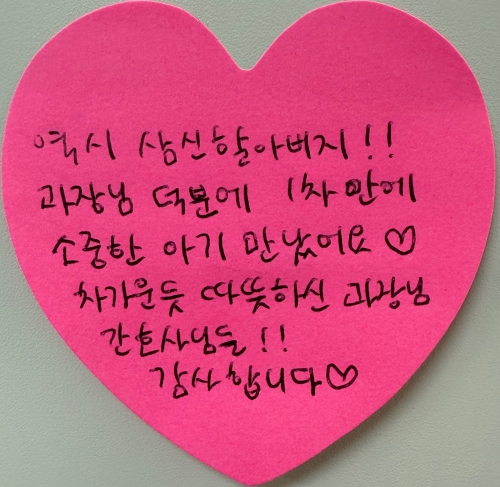 역시 삼신할아버지!!
과장님 덕분에 1차만에
소중한 아기 만났어요♡
차가운듯 따뜻하신 과장님
간호사님들!!
감사합니다♡